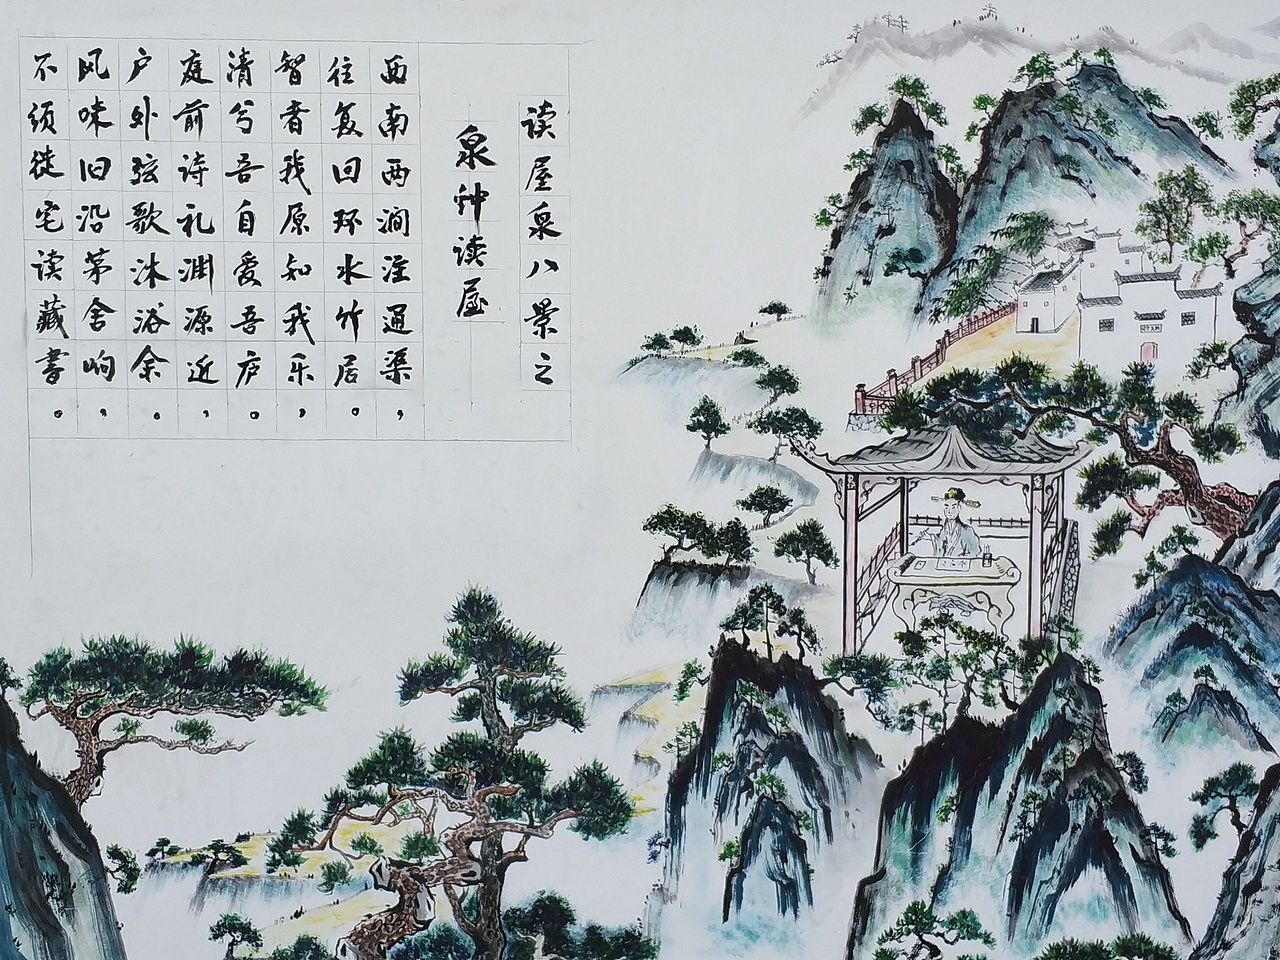 读屋泉八景之
泉 读屋
西南两涧注通渠，
往复回环水竹居。
智者我原知我乐，
清兮吾自爱吾庐。
庭前诗礼渊源近，
户外弦歌沐浴余。
风味旧沿茅舍响，
不须徒宅读藏书。